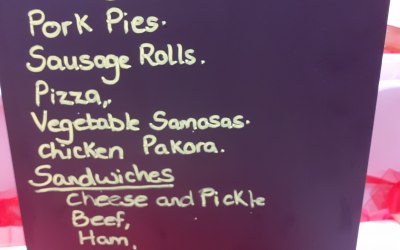 Pork Pies.
Sausage Rolls.
Pizza,.
Vegetable Samosas.
chicken Pakora.
Sandwiches
Cheese and Pickle
Beef,
Ham,